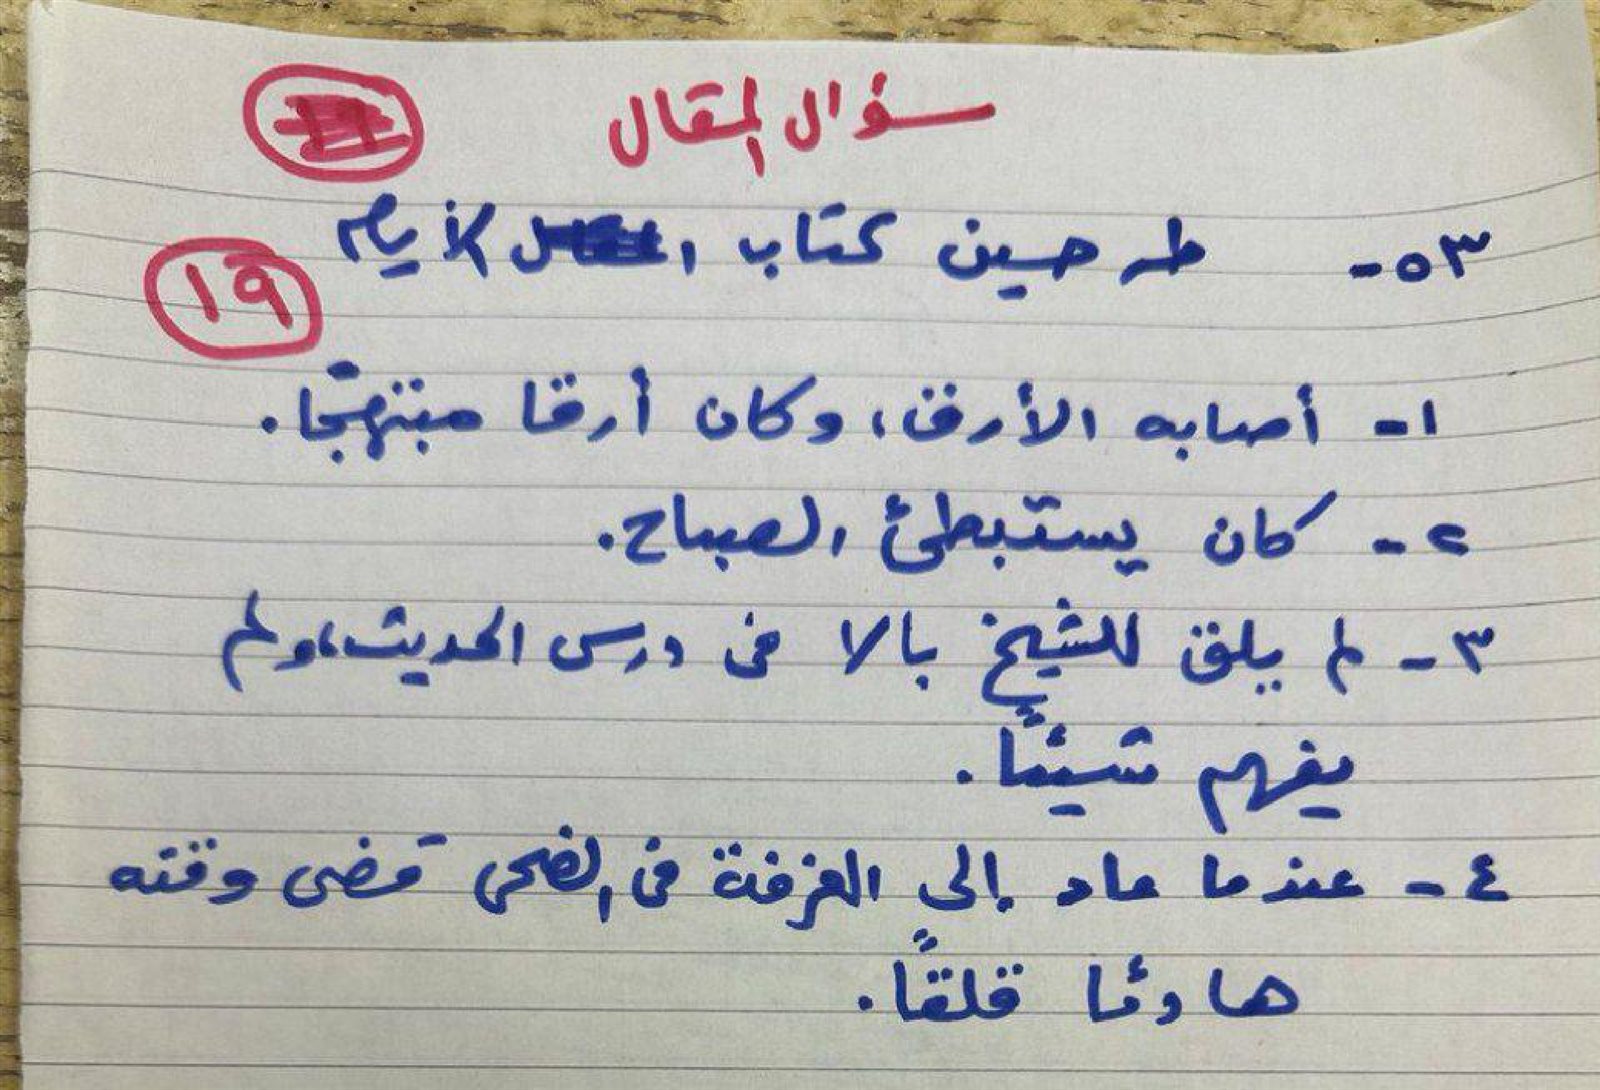 سؤال المقال
٥٣- طه حسين كتاب الأيام
١٩
١- أصابه الأرق، وكان أرقا مبتهجًا.
٢- كان يستبطئ الصباح.
٣- لم يلق للشيخ بالا فى درس الحديث، ولم
يفهم شيئًا.
٤- عندما عاد إلى الغرفة فى الضحى قضى وقته
هادئا قلقًا.